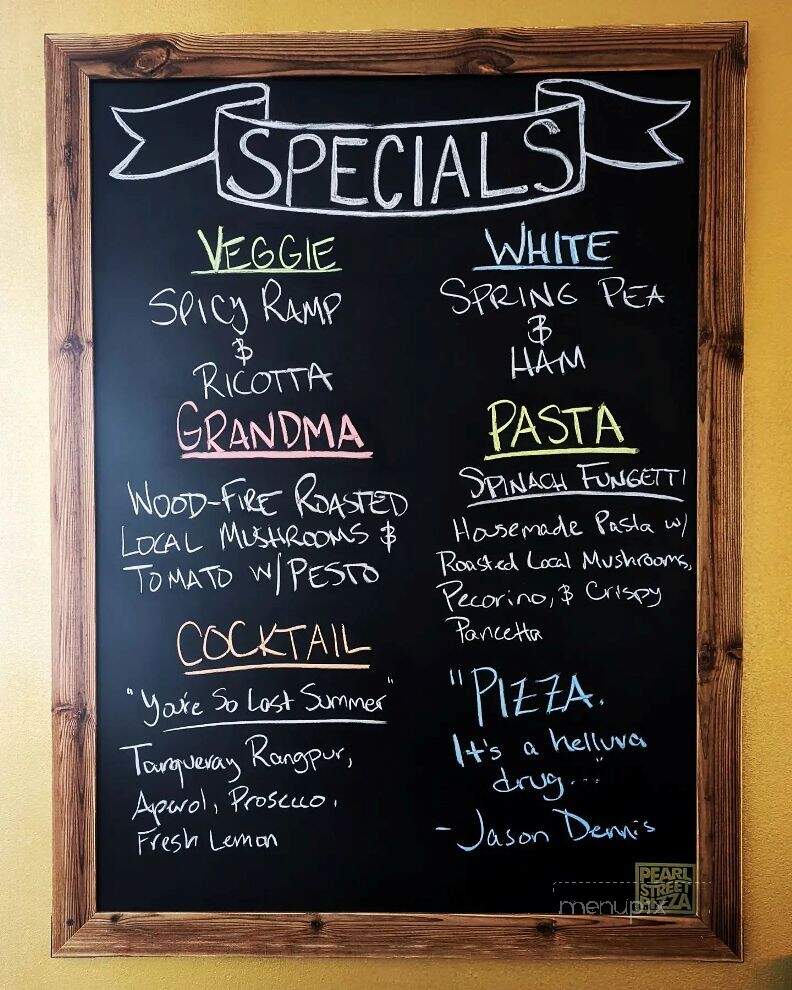 SPECIALS
VEGGIE
SPICY RAMP
&
RICOTTA
WHITE
SPRING PEA
&
HAM
GRANDMA
WOOD-FIRE ROASTED
LOCAL MUSHROOMS &
TOMATO W/PESTO
PASTA
SPINACH FUNGETTI
Housemade Pasta w/
Roasted Local Mushrooms,
Pecorino, & Crispy
Pancetta
COCKTAIL
"You're So Last Summer"
Tanqueray Rangpur,
Aperol, Prosecco,
Fresh Lemon
"PIZZA.
It's a helluva
drug..."
- Jason Dennis
PEARL
STREET
PIZZA
menupix